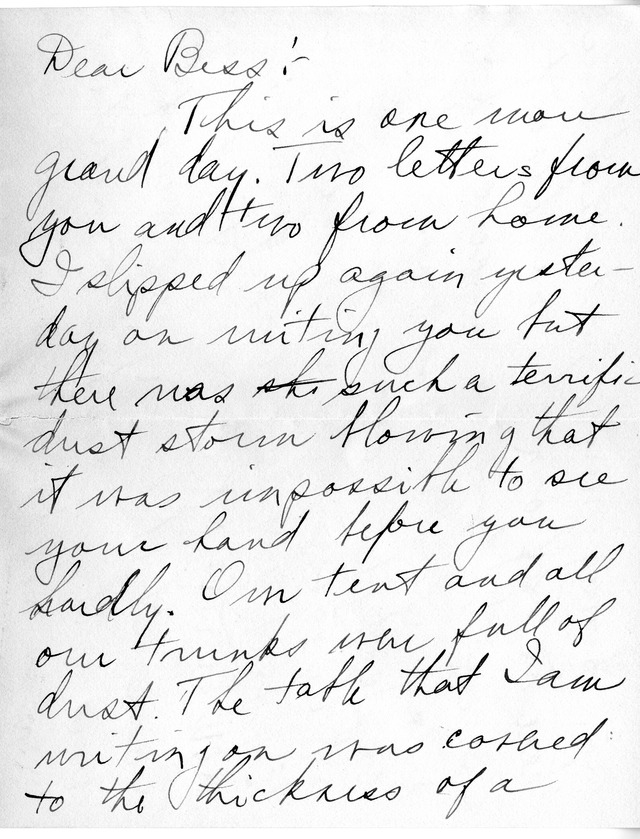 Dear Bess :-
This is one more
grand day. Two letters from
you and two from home.
I slipped up again yester-
day on writing you but
there was she such a terrific
dust storm blowing that
it was impossible to see
your hand before you
hardly. Our tent and all
our trunks were full of
dust. The table that I am
writing on was covered
to the thickness of a